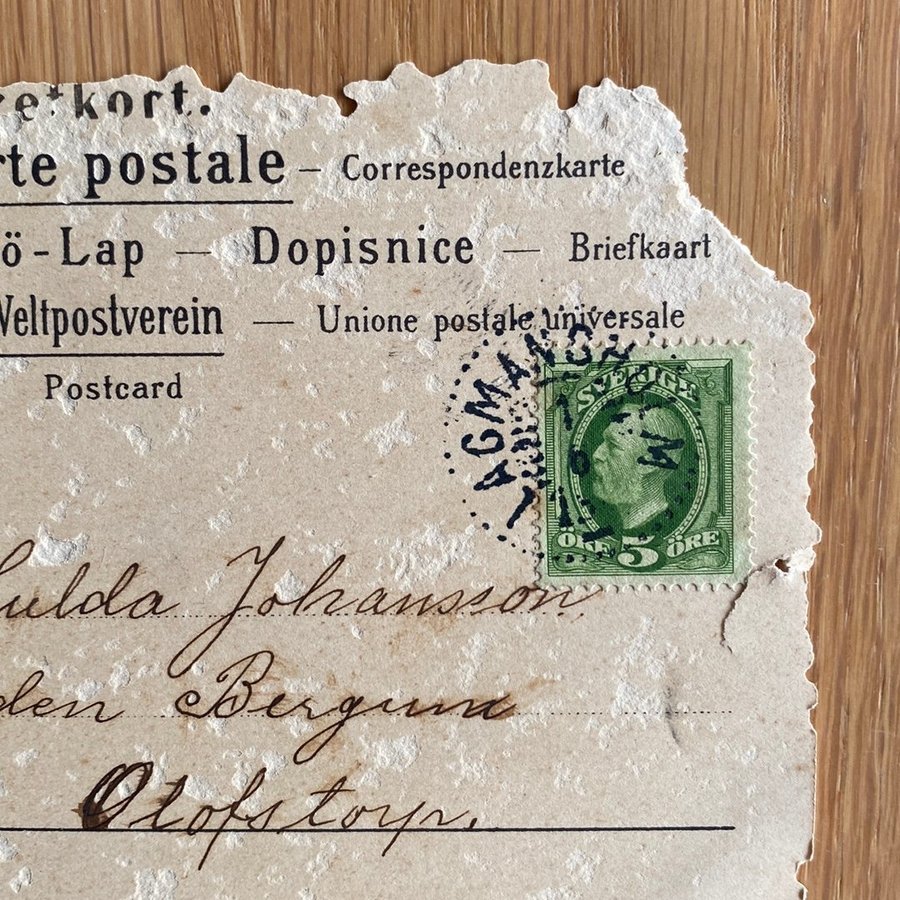 etkort.
rte postale – Correspondenzkarte
ö-Lap — Dopisnice — Briefkaart
Weltpostverein — Unione postale universale
Postcard
SVERIGE
ÖRE 5 ÖRE
Hulda Johansson
den Bergum
Olofstorp.